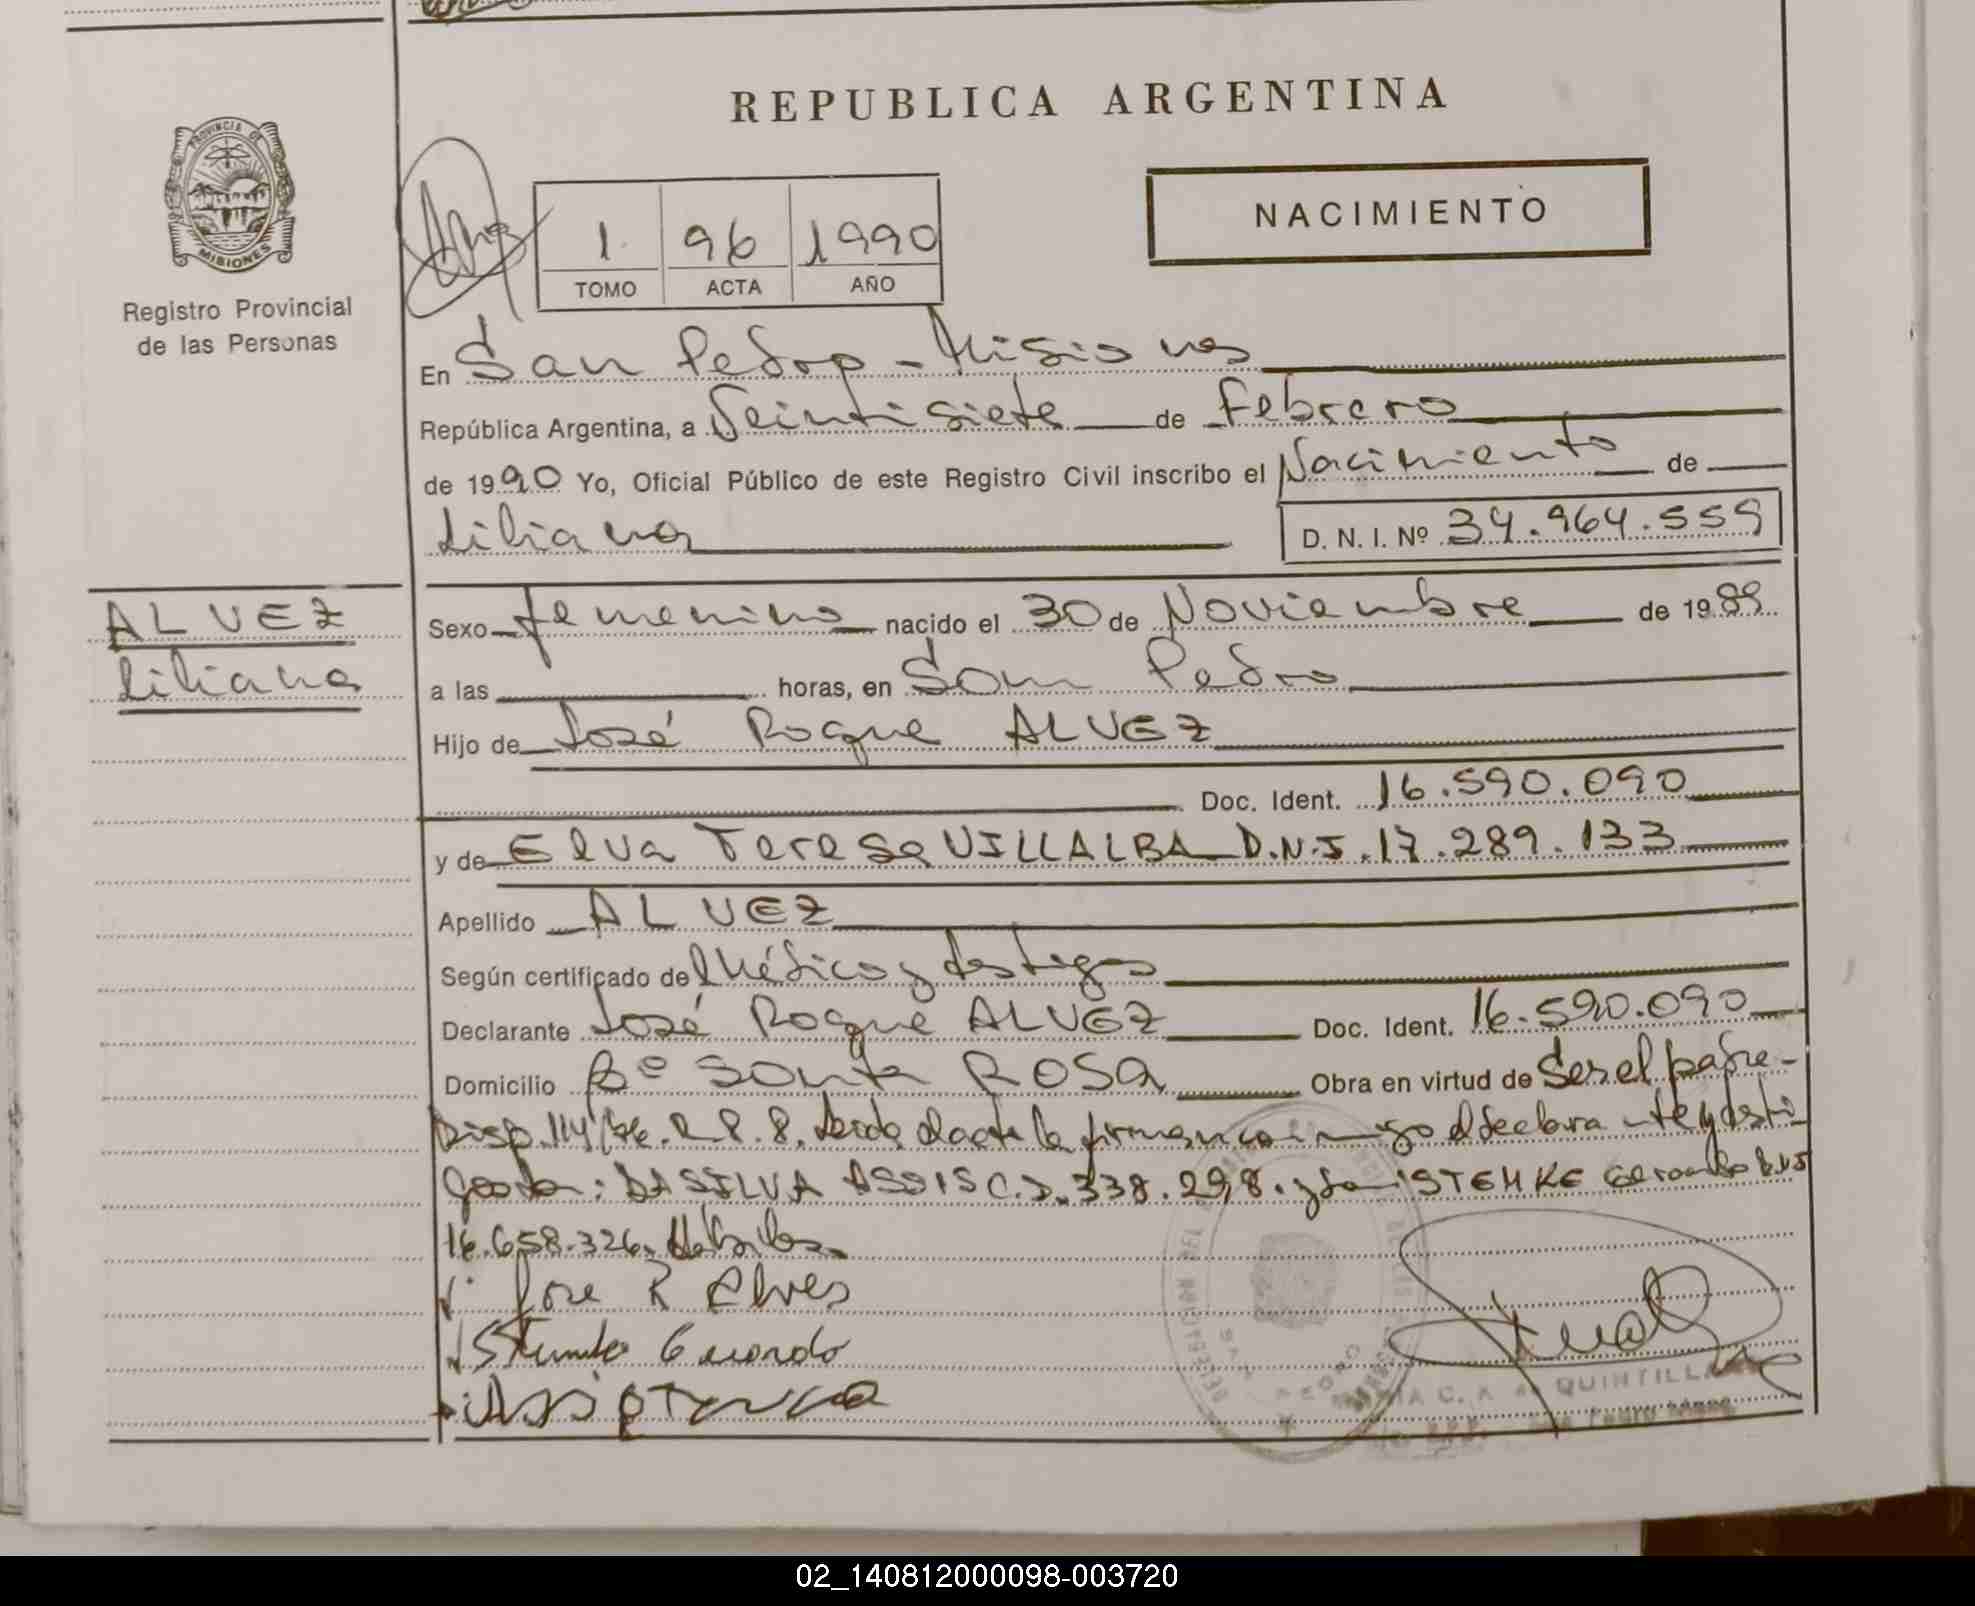 REPUBLICA ARGENTINA
PROVINCIA DE
MISIONES
Registro Provincial
de las Personas
NACIMIENTO
1 96 1990
TOMO ACTA AÑO
En San Pedro - Misiones
República Argentina, a Veintisiete de Febrero
de 1990 Yo, Oficial Público de este Registro Civil inscribo el Nacimiento de
Liliana D. N. I. Nº 34.964.559
ALVEZ
Liliana
Sexo femenino nacido el 30 de Noviembre de 1989
a las horas, en San Pedro
Hijo de José Roque ALVEZ
Doc. Ident. 16.590.090
y de Elva Teresa VILLALBA D.N.I. 17.289.133
Apellido ALVEZ
Según certificado de Médico y testigos
Declarante José Roque ALVEZ Doc. Ident. 16.590.090
Domicilio Bº Santa ROSA Obra en virtud de Ser el padre-
Disp. 114/86. R.P.P. Leida el acta la firman conmigo el declarante y testi-
gos: DA SILVA ASSIS C.I. 338.298. y STEMKE Gerardo D.N.I
16.658.326.
Jose R Alves
Gerardo
QUINTILL
02_140812000098-003720